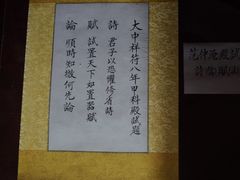 大中祥符八年甲科殿試題
詩 君子以恐懼修省詩
賦 試置天下如置器賦
論 順時知微何先論
范仲淹殿試